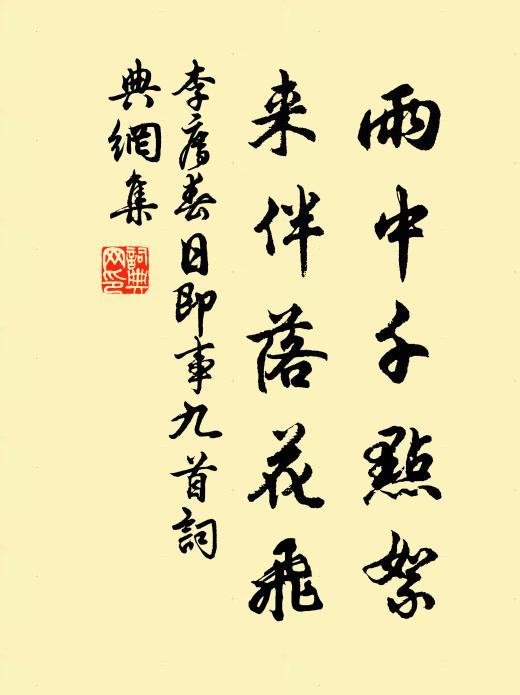 雨中千點絮
来伴落花飛
李廌春日即事九首詞
典網集
詞典
网印